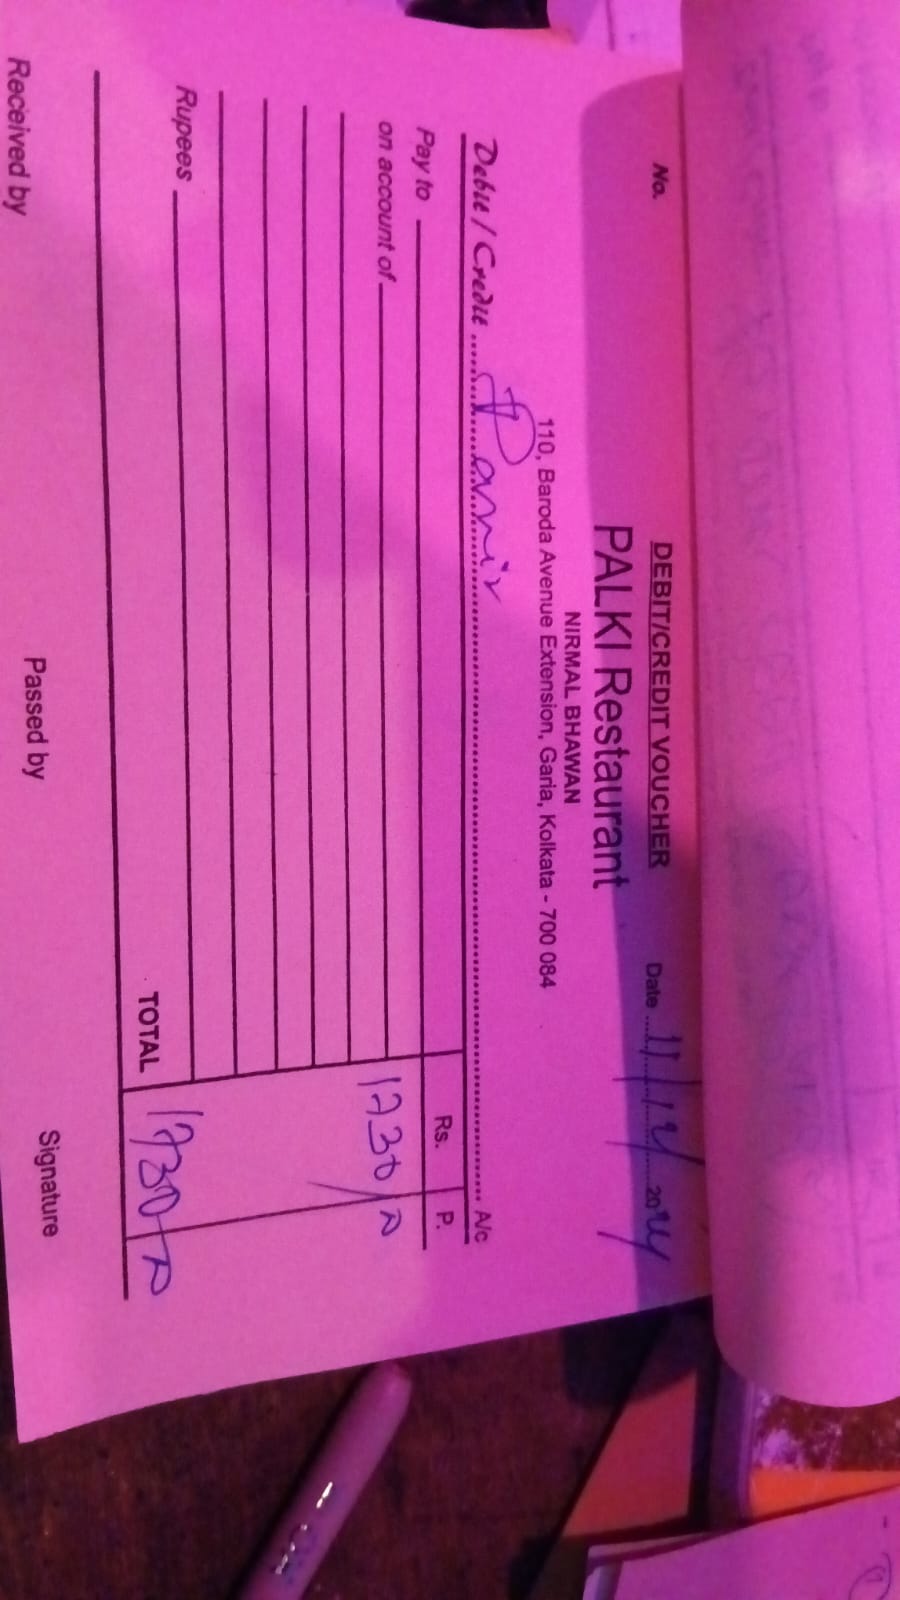 DEBIT/CREDIT VOUCHER
No. Date 11/12/2024
PALKI Restaurant
NIRMAL BHAWAN
110, Baroda Avenue Extension, Garia, Kolkata - 700 084
Debit / Credit A/c
Pay to Rs. P.
on account of 1230/
Rupees
TOTAL 1230
Received by Passed by Signature